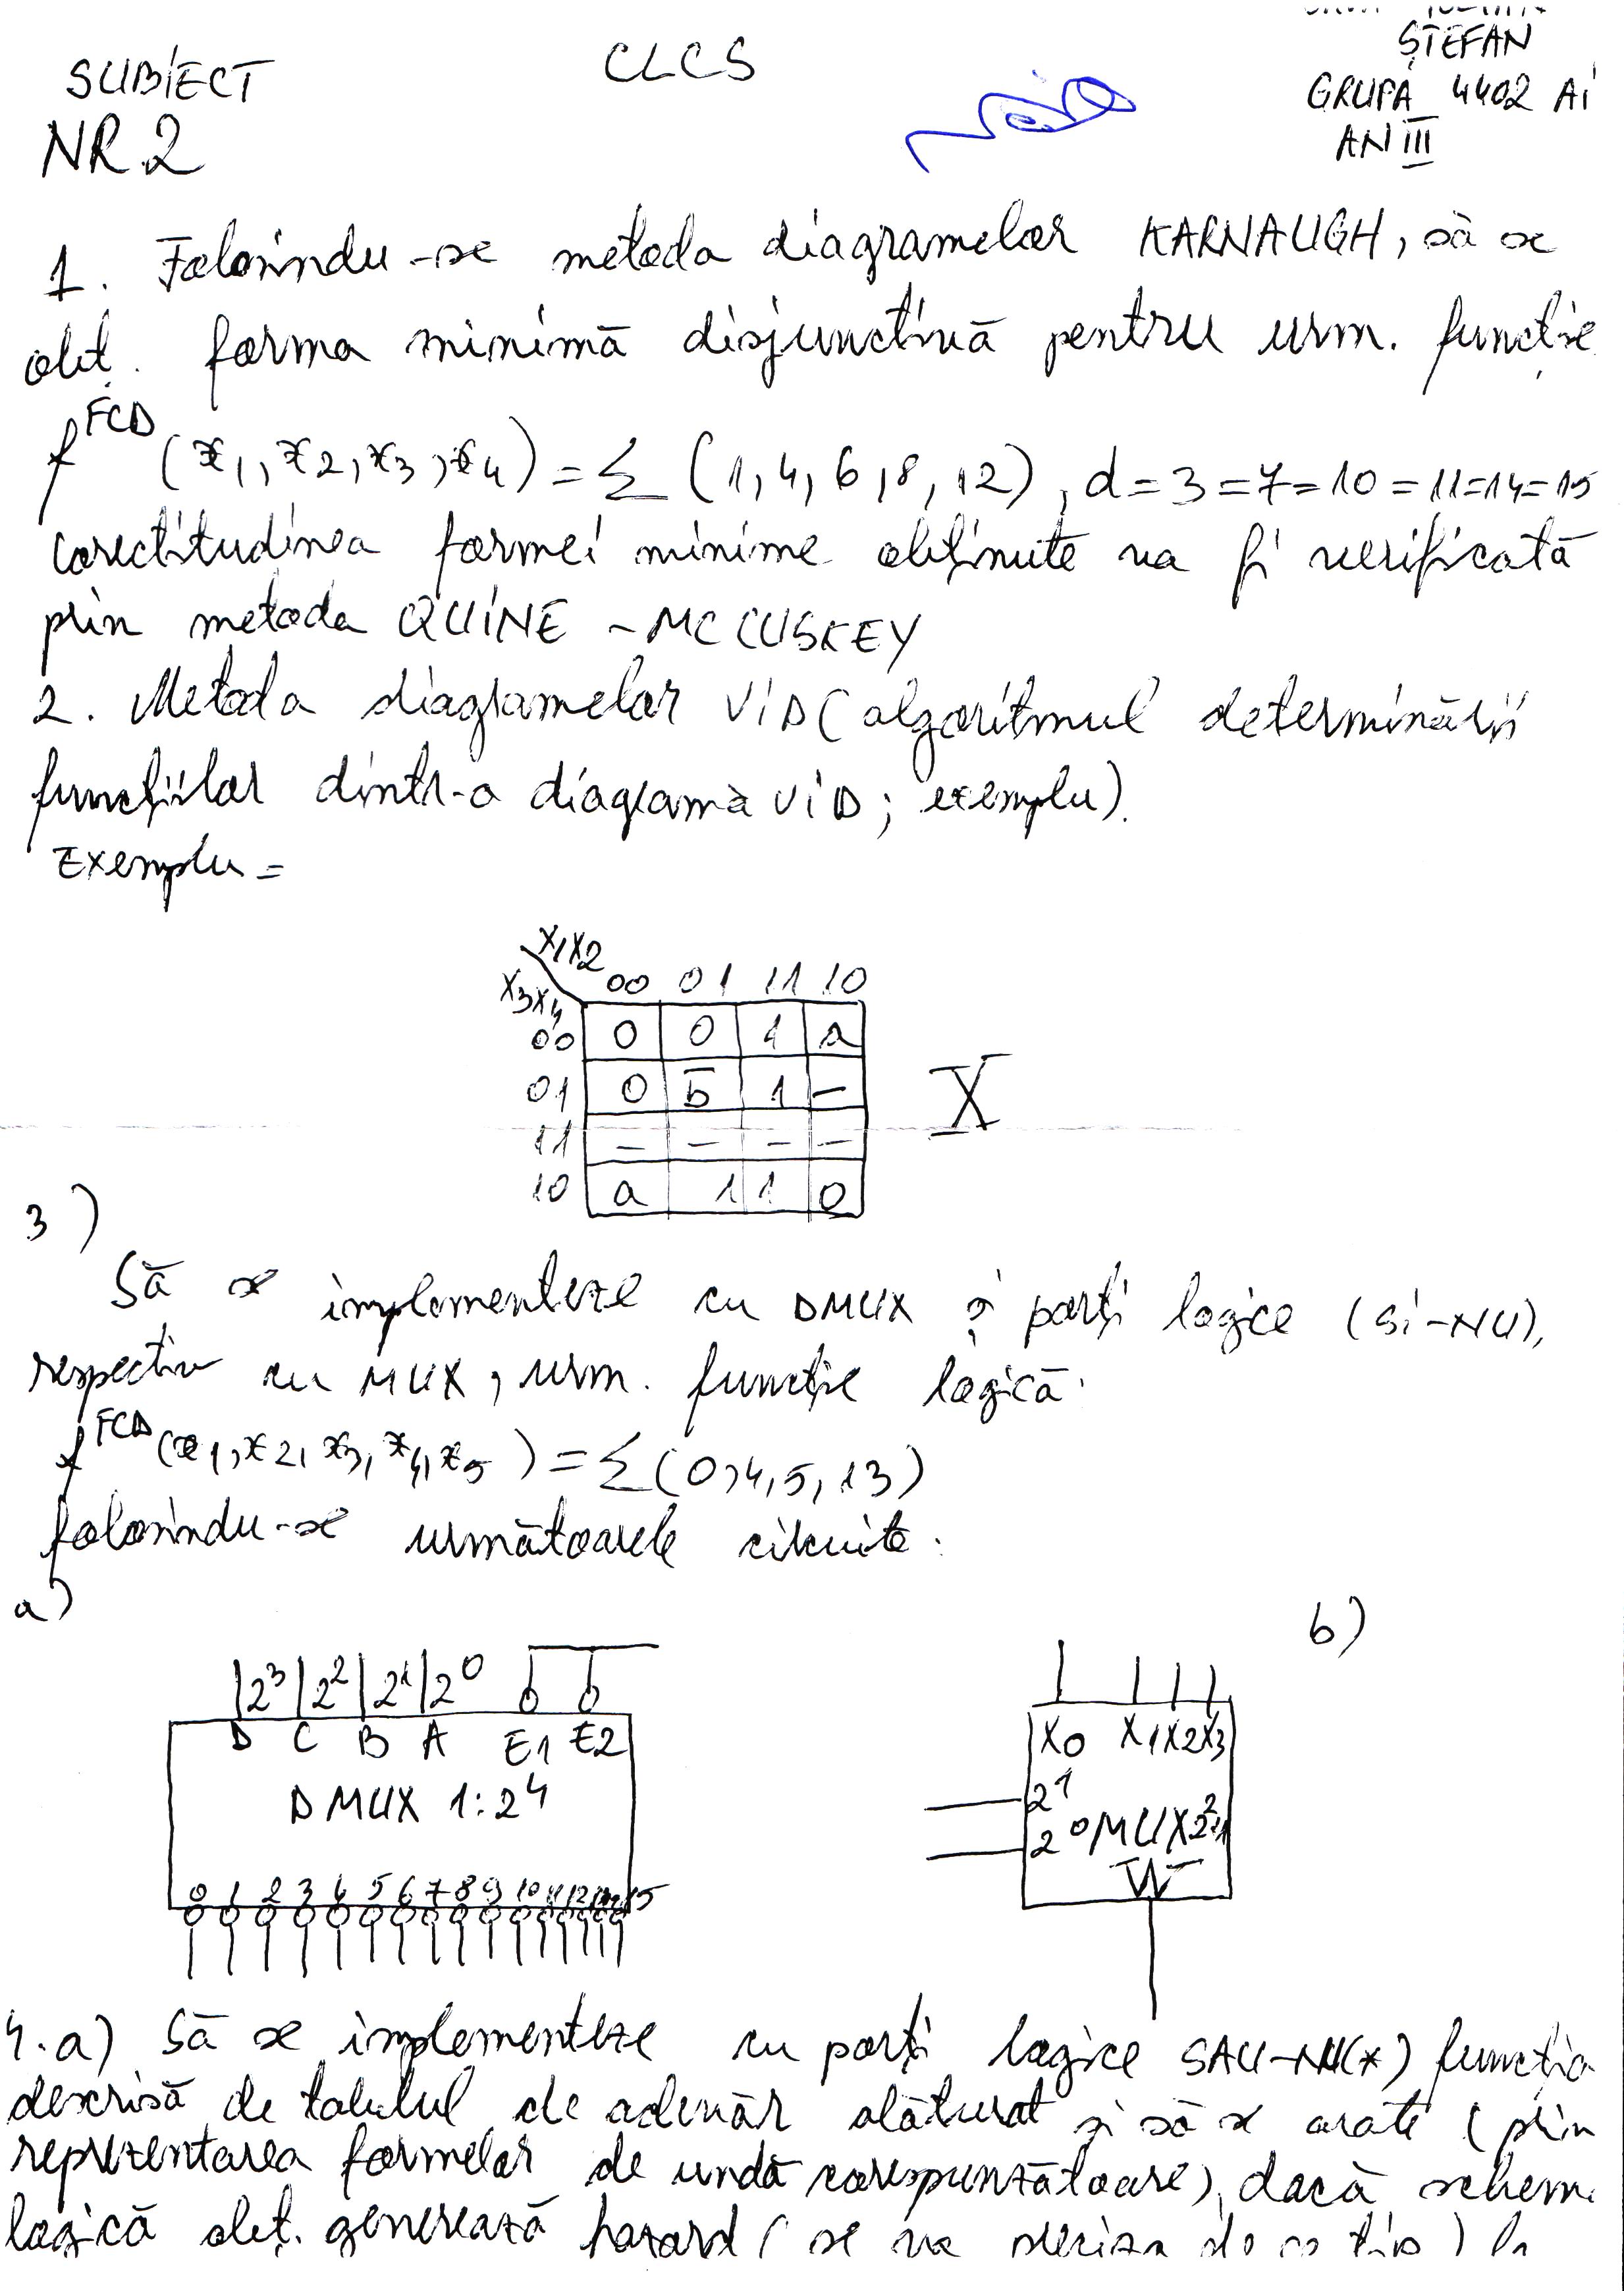 SUBIECT
CLCS
ȘTEFAN
GRUPA 4402 Ai
NR 2
AN III
1. Folosindu-se metoda diagramelor KARNAUGH, să se
obț. forma minimă disjunctivă pentru urm. funcție
f^FCD (x1, x2, x3, x4) = Σ (1, 4, 6, 8, 12), d = 3 = 7 = 10 = 11 = 14 = 15
Corectitudinea formei minime obținute va fi verificată
prin metoda QUINE - MC CUSKEY
2. Metoda diagramelor VID (algoritmul determinării
funcțiilor dintr-o diagramă VID; exemplu).
Exemplu =
X1X2
X3X4
00 01 11 10
00 0 0 1 a
01 0 b̄ 1 -
11 - - - -
10 a 1 1 0
X
3)
Să se implementeze cu DMUX și porți logice (SI-NU),
respectiv cu MUX, urm. funcție logică:
f^FCD (x1, x2, x3, x4, x5) = Σ (0, 4, 5, 13)
folosindu-se următoarele circuite:
a)
b)
2³ 2² 2¹ 2⁰
D C B A E1 E2
DMUX 1:2⁴
0 1 2 3 4 5 6 7 8 9 10 11 12 13 14 15
X0 X1 X2 X3
2¹
2⁰ MUX 2²:1
W
4. a) Să se implementeze cu porți logice SAU-NU(*) funcția
descrisă de tabelul de adevăr alăturat și să se arate (prin
reprezentarea formelor de undă corespunzătoare), dacă schem
logică obț. generează hazard (se va preciza de ce tip) la